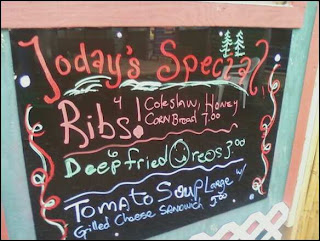 Today's Special,
4
Ribs! Coleslaw, Honey
Corn Bread 7.00
6
Deep Fried Oreos 3.00
Tomato Soup Large w/
Grilled Cheese Sandwich 5.00